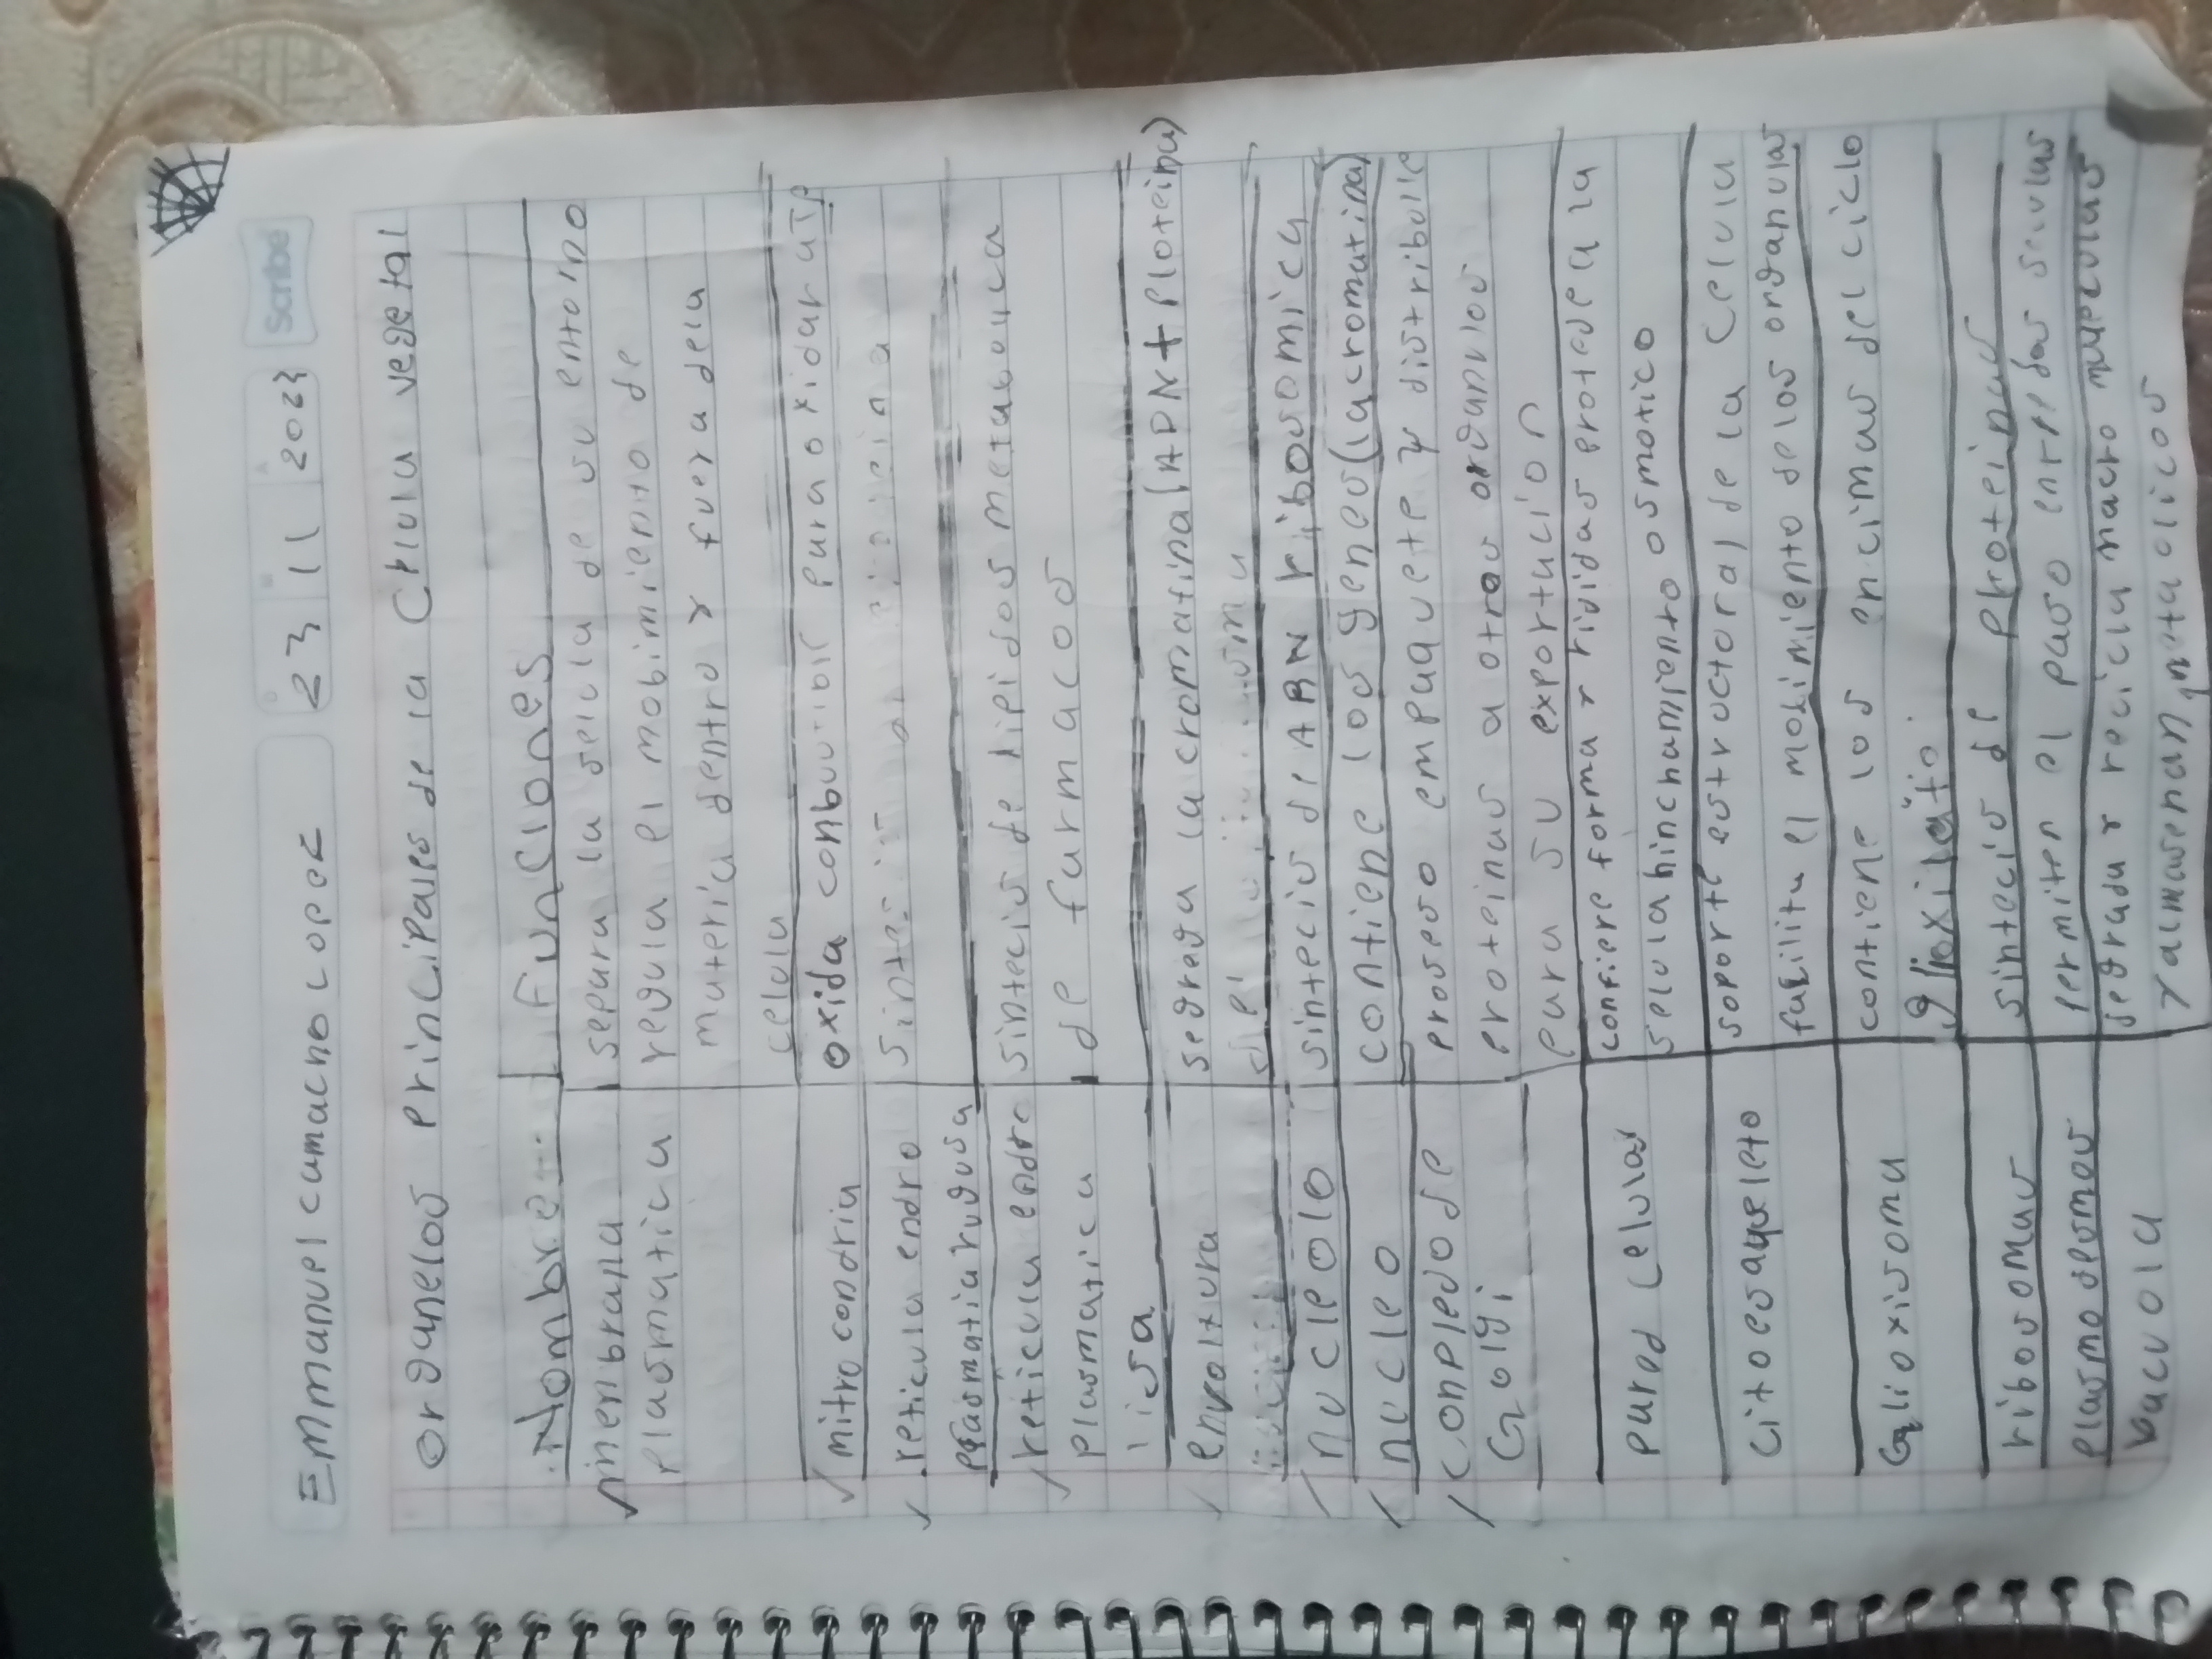 Emmanuel camacho Lopez
D M A
23 11 2023
Scribe
Organelos principales de la Celula vegetal
Nombre Funciones
membrana separa la selula de su entorno
plasmatica regula el mobimiento de
materia dentro y fuera dela
celula
mitrocondria oxida conbustible para oxidar ATP
reticula endro
plasmatia rugosa
reticula endro sintecis de lipidos metabolica
plasmatica de farmacos
lisa
envoltura segrega la cromatina(ADN+Proteina)
nucleolo sintecis de ARN ribosomica
nucleo contiene los genes(la cromatina)
conplejo de proseso empaquete y distribulle
Golgi proteinas a otros organlos
para su exportacion
pared celular confiere forma y rigidas protegea la
selula hinchamiento osmotico
citoesaqueleto soporte estructoral de la Celula
facilita el mobimiento delos organulas
Glioxisoma contiene los encimas del ciclo
glioxilato
ribosomas sintecis de proteinas
plasmodesmos permiten el paso entre las selulas
bacuola degrada y recicla macro moleculas
y almasenan metabolicos